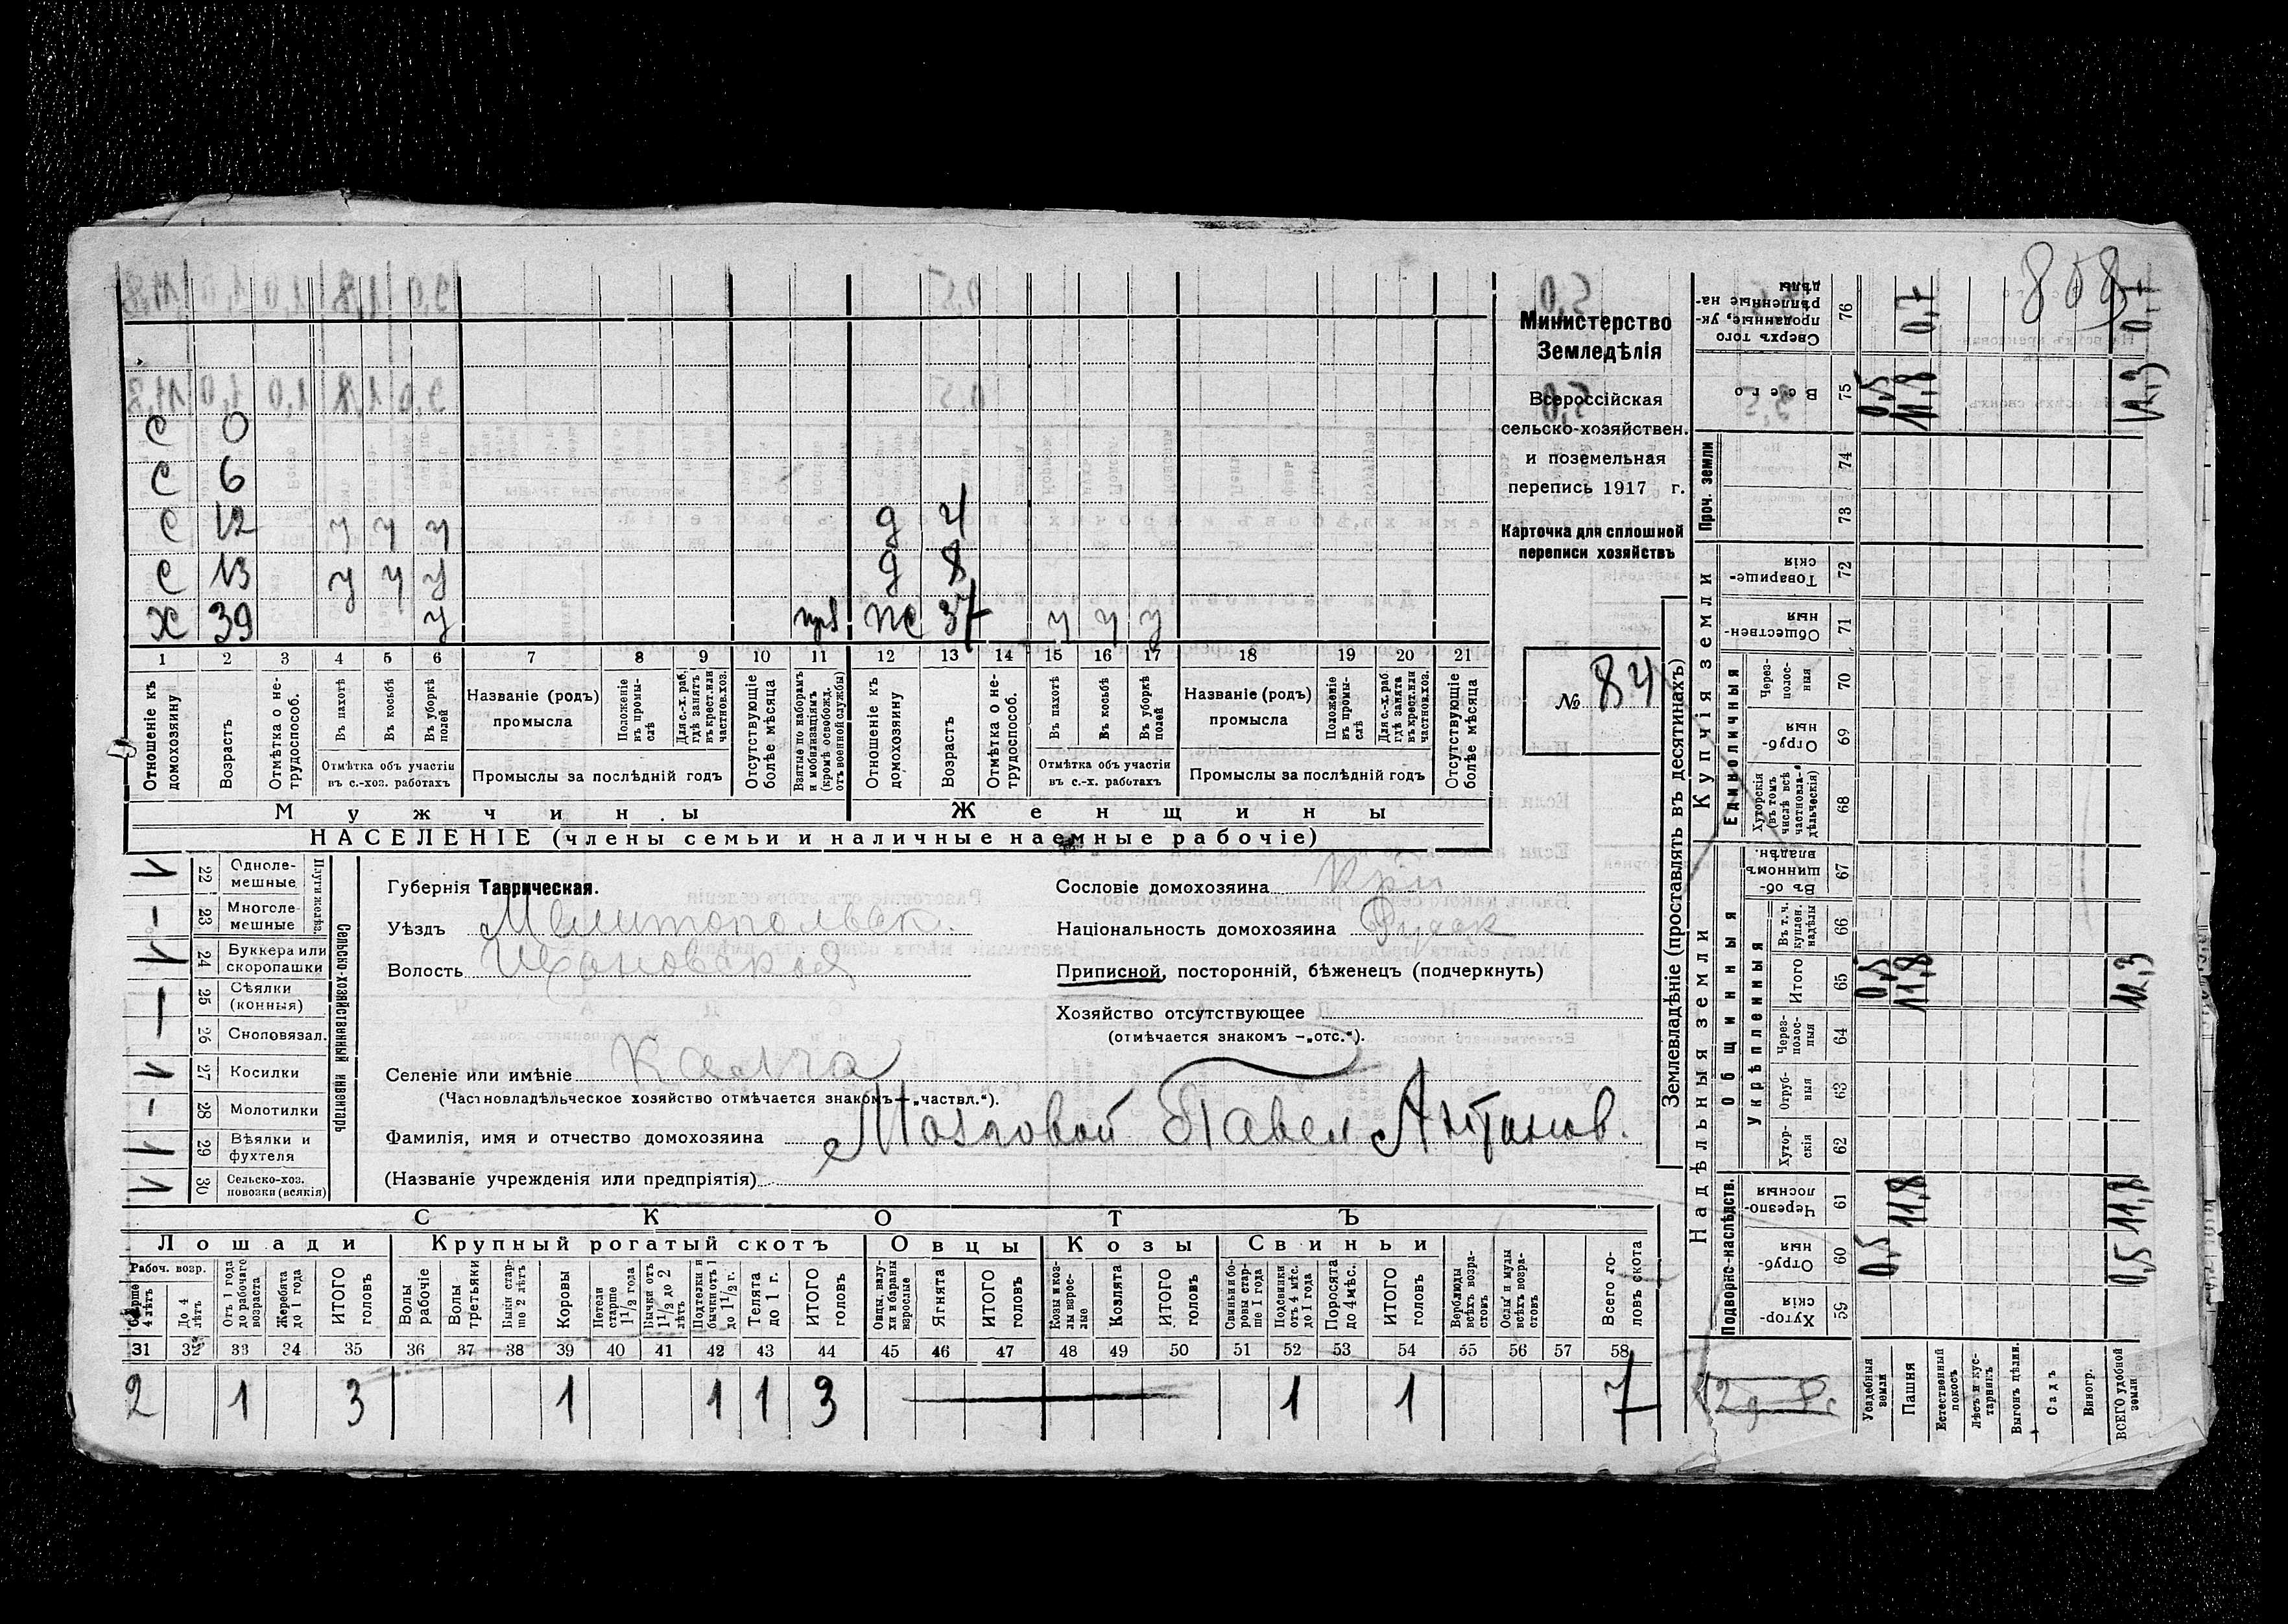 808
Министерство
Земледѣлія
Всероссійская
сельско-хозяйствен.
и поземельная
перепись 1917 г.
Карточка для сплошной
переписи хозяйствъ
№ 84
С 0
С 6
С 12 у у у д 4
С 13 у у у д 8
Х 39 у жс 37 у у у
1 2 3 4 5 6 7 8 9 10 11 12 13 14 15 16 17 18 19 20 21
Отношеніе къ домохозяину
Возрастъ
Отмѣтка о не-трудоспособ.
Въ пахотѣ
Въ косьбѣ
Въ уборкѣ полей
Отмѣтка объ участіи въ с.-хоз. работахъ
Названіе (родъ) промысла
Положеніе въ промы-слѣ
Для с.-х. раб. гдѣ занятъ въ крест. или частнов. хоз.
Промыслы за послѣдній годъ
Отсутствующіе болѣе мѣсяца
Взятые по наборамъ и мобилизаціямъ (кромѣ освобожд. отъ военной службы)
Отношеніе къ домохозяину
Возрастъ
Отмѣтка о не-трудоспособ.
Въ пахотѣ
Въ косьбѣ
Въ уборкѣ полей
Отмѣтка объ участіи въ с.-х. работахъ
Названіе (родъ) промысла
Положеніе въ промы-слѣ
Для с.-х. раб. гдѣ занята въ крест. или частнов. хоз.
Промыслы за послѣдній годъ
Отсутствующіе болѣе мѣсяца
Мужчины Женщины
НАСЕЛЕНІЕ (члены семьи и наличные наемные рабочіе)
Сельско-хозяйственный инвентарь
Плуги желѣз.
22 Одноле-мешные
23 Многоле-мешные
24 Буккера или скоропашки
25 Сѣялки (конныя)
26 Сноповязал.
27 Косилки
28 Молотилки
29 Вѣялки и фухтеля
30 Сельско-хоз. повозки (всякія)
Губернія Таврическая.
Уѣздъ Мелитопольск.
Волость
Сословіе домохозяина Кр-н
Національность домохозяина Русск
Приписной, посторонній, бѣженецъ (подчеркнуть)
Хозяйство отсутствующее
(отмѣчается знакомъ —„отс.“).
Селеніе или имѣніе
(Частновладѣльческое хозяйство отмѣчается знакомъ —„частвл.“).
Фамилія, имя и отчество домохозяина Мозговой Павел Антонов.
(Названіе учрежденія или предпріятія)
СКОТЪ
Лошади Крупный рогатый скотъ Овцы Козы Свиньи
Рабоч. возр.
Старше 4 лѣтъ
До 4 лѣтъ
Отъ 1 года до рабочаго возраста
Жеребята до 1 года
ИТОГО головъ
Волы рабочіе
Волы третьяки
Быки стар-ше 2 лѣтъ
Коровы
Нетели старше 1 1/2 года
Бычки отъ 1 1/2 до 2 лѣтъ
Подтелки и бычки отъ 1 до 1 1/2 г.
Телята до 1 г.
ИТОГО головъ
Овцы, валу-хи и бараны взрослые
Ягнята
ИТОГО головъ
Козы и коз-лы взрос-лые
Козлята
ИТОГО головъ
Свиньи и бо-ровы стар-ше 1 года
Подсвинки отъ 4 мѣс. до 1 года
Поросята до 4 мѣс.
ИТОГО головъ
Верблюды всѣхъ возра-стовъ
Ослы и мулы всѣхъ возра-стовъ
Всего го-ловъ скота
31 32 33 34 35 36 37 38 39 40 41 42 43 44 45 46 47 48 49 50 51 52 53 54 55 56 57 58
2 1 3 1 1 1 3 1 1 7
Землевладѣніе (проставлять въ десятинахъ)
Купчія земли
Надѣльныя земли
Сверхъ того проданные, ук-рѣпленные на-дѣлы 76 0,7
Всего 75 0,5 11,8 12,3
Проч. земли 74 73
Товарище-скія 72
Обществен-ныя 71
Единоличныя
Через-полос-ныя 70
Отруб-ныя 69
Хуторскія (въ томъ числѣ всѣ частновла-дѣльческія) 68
Общинныя
Въ об-щинномъ владѣн. 67
Укрѣпленныя
Въ т. ч. куплен. надѣлы 66
Итого 65 0,5 11,8 12,3
Через-полос-ныя 64
Отруб-ныя 63
Хутор-скія 62
Подворно-наслѣдств.
Черезпо-лосныя 61 11,8 11,8
Отруб-ныя 60 0,5 0,5
Хутор-скія 59
Усадебныя земли
Пашня
Естественный покосъ
Лѣсъ и кус-тарникъ
Выгонъ цѣлин.
Садъ
Виногр.
ВСЕГО удобной земли